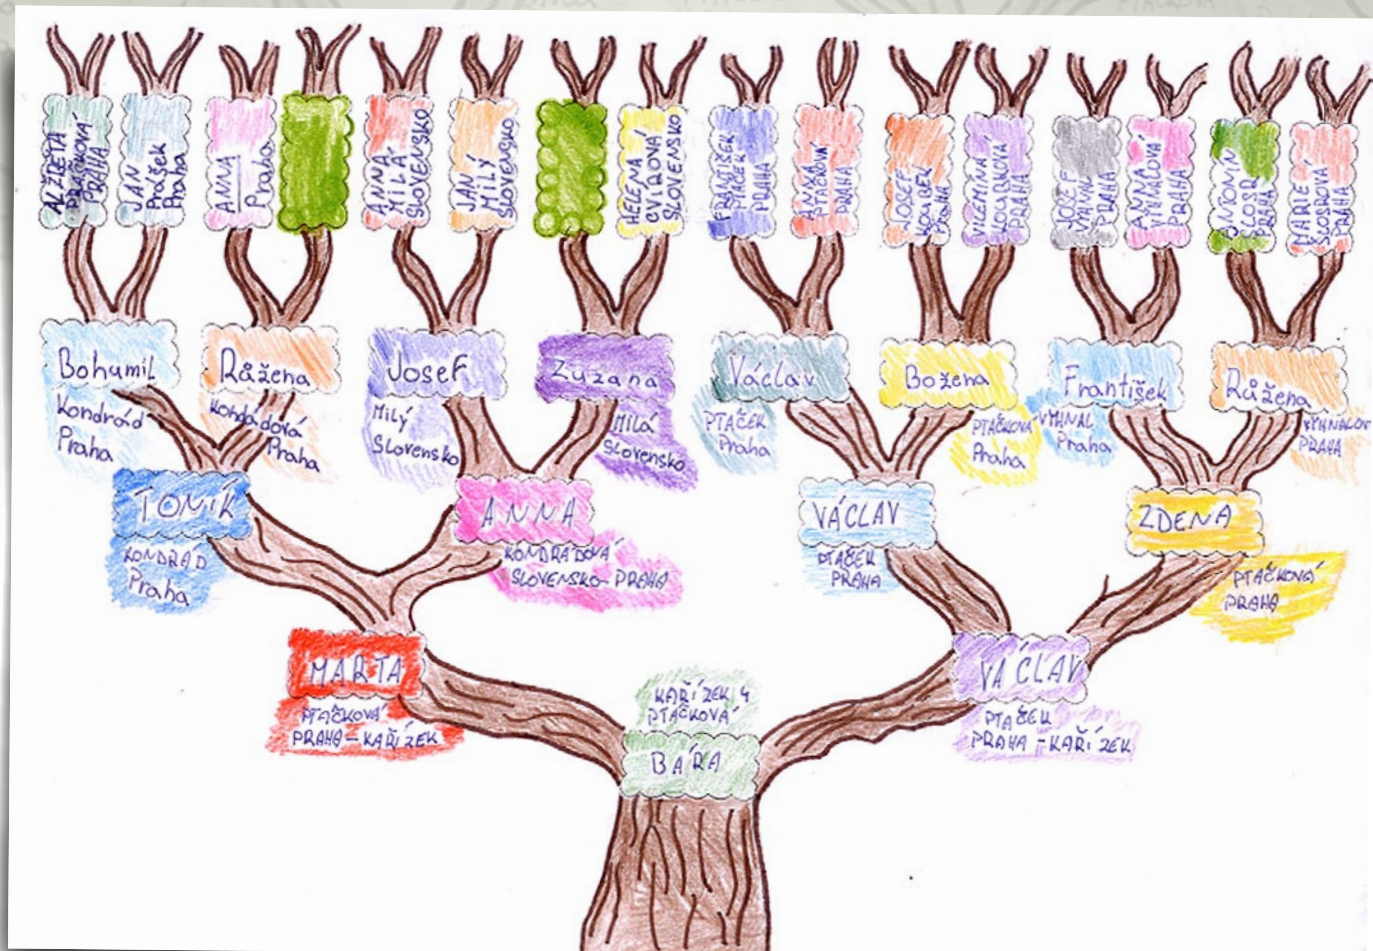 PRAHA
JAN
Prášek
Praha
ANNA
Praha
ANNA
MILÁ
SLOVENSKO
JAN
MILÝ
SLOVENSKO
HELENA
CVROVÁ
SLOVENSKO
FRANTIŠEK
PTÁČEK
PRAHA
ANNA
PTÁČKOVÁ
PRAHA
JOSEF
KOUBEK
PRAHA
VILEMÍNA
KOUBKOVÁ
PRAHA
JOSEF
VÝHNAL
PRAHA
ANNA
VÝHNALOVÁ
PRAHA
ANTONÍN
ŠLOSR
PRAHA
MARIE
ŠLOSROVÁ
PRAHA
Bohumil
Kondrád
Praha
Růžena
Kondádová
Praha
Josef
Milý
Slovensko
Zuzana
Milá
Slovensko
Václav
PTÁČEK
Praha
Božena
PTÁČKOVÁ
Praha
František
VÝHNAL
Praha
Růžena
PRAHA
TONÍK
KONDRÁD
Praha
ANNA
KONDRÁDOVÁ
SLOVENSKO-PRAHA
VÁCLAV
PTÁČEK
PRAHA
ZDENA
PTÁČKOVÁ
PRAHA
MARTA
PTÁČKOVÁ
PRAHA-KAŘÍZEK
VÁCLAV
PTÁČEK
PRAHA-KAŘÍZEK
KAŘÍZEK 4
PTÁČKOVÁ
BÁRA